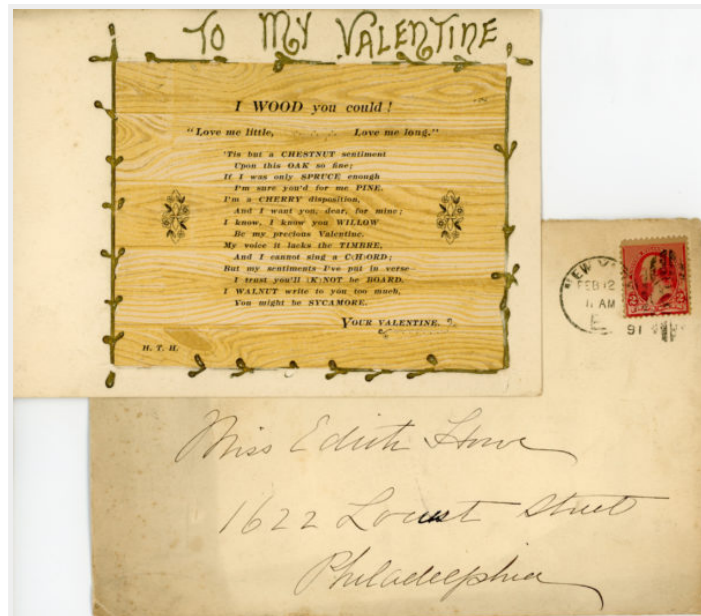 TO MY VALENTINE
I WOOD you could!
"Love me little, Love me long."
'Tis but a CHESTNUT sentiment
Upon this OAK so fine;
If I was only SPRUCE enough
I'm sure you'd for me PINE.
I'm a CHERRY disposition,
And I want you, dear, for mine;
I know, I know you WILLOW
Be my precious Valentine.
My voice it lacks the TIMBRE,
And I cannot sing a C(H)ORD;
But my sentiments I've put in verse
I trust you'll (K)NOT be BOARD.
I WALNUT write to you too much,
You might be SYCAMORE.
YOUR VALENTINE.
H. T. H.
NEW
FEB 12
11 AM
E
91
Miss Edith Howe
1622 Locust Street
Philadelphia